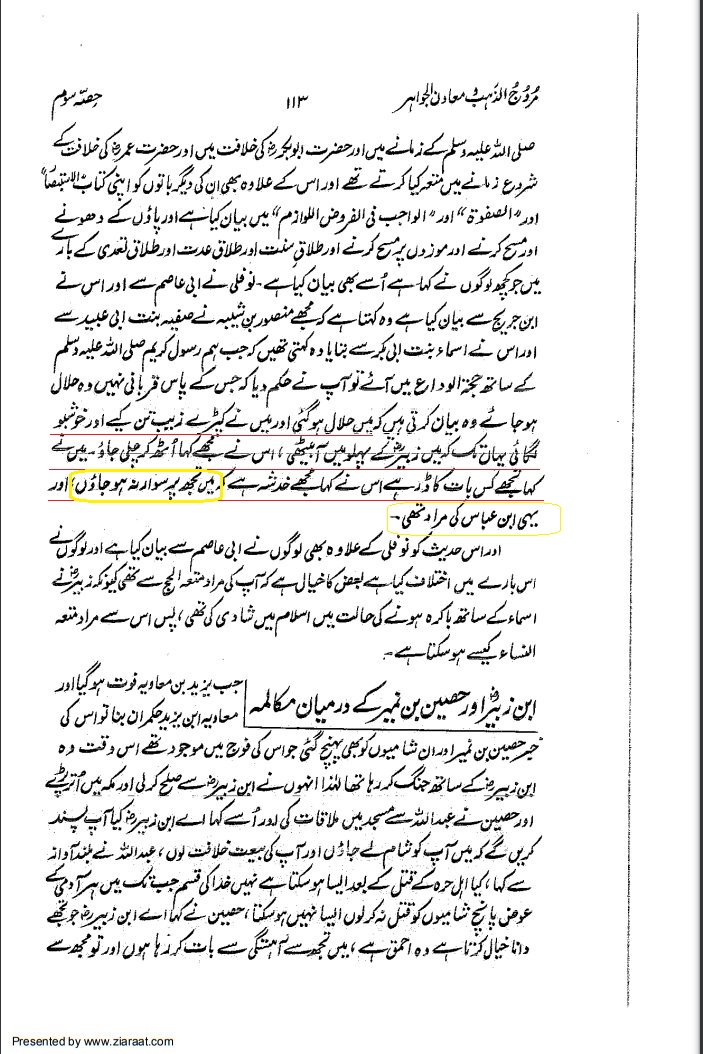 مروج الذہب و معادن الجواہر ۱۱۳ حصہ سوم
صلی اللہ علیہ وسلم کے زمانے میں اور حضرت ابوبکرؓ کی خلافت میں اور حضرت عمرؓ کی خلافت کے
شروع زمانے میں متعہ کیا کرتے تھے اور اس کے علاوہ بھی ان کی دیگر باتوں کو اپنی کتاب "الاستبصار"
اور "الصفوۃ" اور "الواجب فی الفروض اللوازم" میں بیان کیا ہے اور پاؤں کے دھونے
اور مسح کرنے اور موزوں پر مسح کرنے اور طلاق سنت اور طلاق عدت اور طلاق تعدی کے بارے
میں جو کچھ لوگوں نے کہا ہے اُسے بھی بیان کیا ہے۔ نوفلی نے ابی عاصم سے اور اس نے
ابن جریج سے بیان کیا ہے وہ کہتا ہے کہ مجھے منصور بن شیبہ نے صفیہ بنت ابی عبید سے
اور اس نے اسماء بنت ابی بکر سے بتایا وہ کہتی تھیں کہ جب ہم رسول کریم صلی اللہ علیہ وسلم
کے ساتھ حجۃ الوداع میں آئے تو آپ نے حکم دیا کہ جس کے پاس قربانی نہیں وہ حلال
ہو جائے وہ بیان کرتی ہیں کہ میں حلال ہو گئی اور میں نے کپڑے زیب تن کیے اور خوشبو
لگائی یہاں تک کہ میں زبیرؓ کے پہلو میں آ بیٹھی، اس نے مجھے کہا اُٹھ کر چلی جاؤ۔ میں نے
کہا تجھے کس بات کا ڈر ہے اس نے کہا مجھے خدشہ ہے کہ میں تجھ پر سوار نہ ہو جاؤں، اور
یہی ابن عباس کی مراد تھی۔
اور اس حدیث کو نوفلی کے علاوہ بھی لوگوں نے ابی عاصم سے بیان کیا ہے اور لوگوں نے
اس بارے میں اختلاف کیا ہے بعض کا خیال ہے کہ آپ کی مراد متعہ الحج سے تھی کیونکہ زبیرؓ نے
اسماء کے ساتھ باکرہ ہونے کی حالت میں اسلام میں شادی کی تھی، پس اس سے مراد متعہ
النساء کیسے ہو سکتا ہے۔
ابن زبیرؓ اور حصین بن نمیر کے درمیان مکالمہ
جب یزید بن معاویہ فوت ہو گیا اور
معاویہ ابن یزید حکمران بنا تو اس کی
خبر حصین بن نمیر اور ان شامیوں کو بھی پہنچ گئی جو اس کی فوج میں موجود تھے اس وقت وہ
ابن زبیرؓ کے ساتھ جنگ کر رہا تھا لہٰذا انہوں نے ابن زبیرؓ سے صلح کر لی اور مکہ میں اُتر پڑے
اور حصین نے عبداللہ سے مسجد میں ملاقات کی اور اُسے کہا اے ابن زبیرؓ کیا آپ پسند
کریں گے کہ میں آپ کو شام لے جاؤں اور آپ کی بیعت خلافت لوں، عبداللہ نے بلند آواز
سے کہا، کیا اہل حرہ کے قتل کے بعد ایسا ہو سکتا ہے نہیں خدا کی قسم جب تک میں ہر آدمی کے
عوض پانچ شامیوں کو قتل نہ کر لوں ایسا نہیں ہو سکتا، حصین نے کہا اے ابن زبیرؓ جو تجھے
دانا خیال کرتا ہے وہ احمق ہے، میں تجھ سے آہستگی سے بات کر رہا ہوں اور تو مجھ سے
Presented by www.ziaraat.com